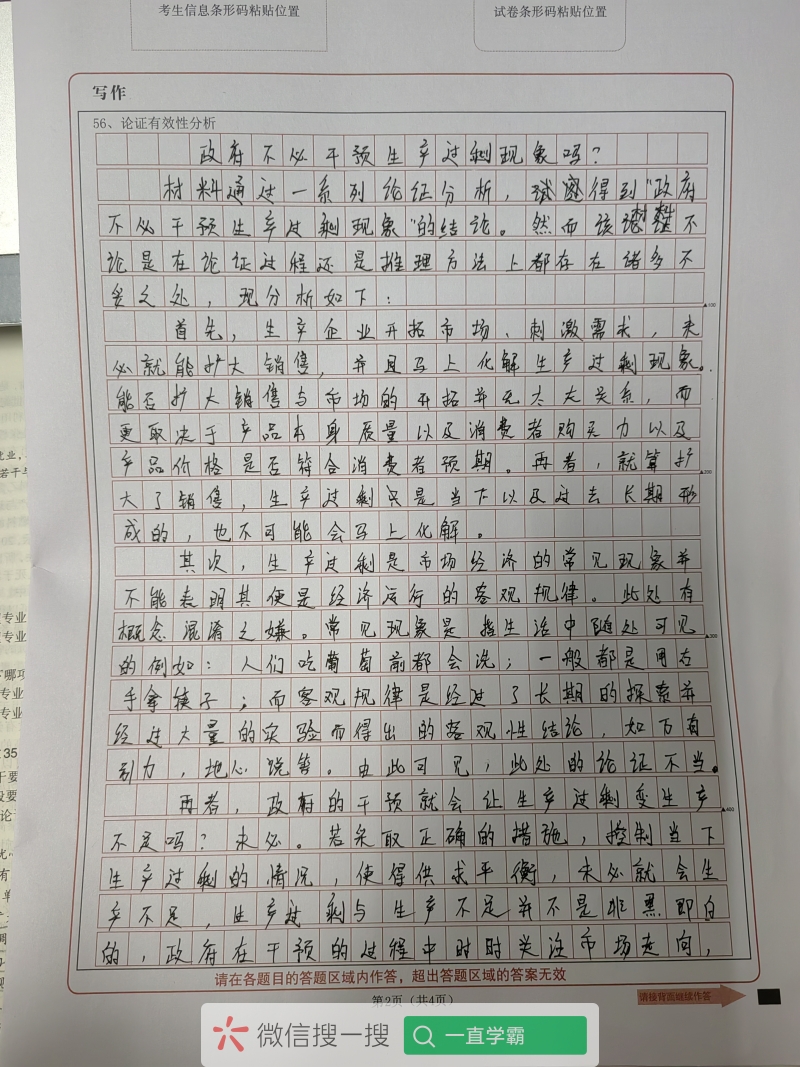 考生信息条形码粘贴位置
试卷条形码粘贴位置
写作
56、论证有效性分析
政府不必干预生产过剩现象吗?
材料通过一系列论证分析,试图得到“政府
不必干预生产过剩现象”的结论。然而该论证不
论是在论证过程还是推理方法上都存在诸多不
妥之处,现分析如下:
首先,生产企业开拓市场、刺激需求,未
必就能扩大销售,并且马上化解生产过剩现象。
能否扩大销售与市场的开拓并无太大关系,而
更取决于产品本身质量以及消费者购买力以及
产品价格是否符合消费者预期。再者,就算扩
大了销售,生产过剩只是当下以及过去长期形
成的,也不可能会马上化解。
其次,生产过剩是市场经济的常见现象并
不能表明其便是经济运行的客观规律。此处有
概念混淆之嫌。常见现象是指生活中随处可见
的例如:人们吃葡萄前都会洗;一般都是用右
手拿筷子;而客观规律是经过了长期的探索并
经过大量的实验而得出的客观性结论,如万有
引力,地心说等。由此可见,此处的论证不当。
再者,政府的干预就会让生产过剩变生产
不足吗?未必。若采取正确的措施,控制当下
生产过剩的情况,使得供求平衡,未必就会生
产不足,生产过剩与生产不足并不是非黑即白
的,政府在干预的过程中时时关注市场走向,
请在各题目的答题区域内作答,超出答题区域的答案无效
第2页(共4页)
请接背面继续作答
微信搜一搜
一直学霸